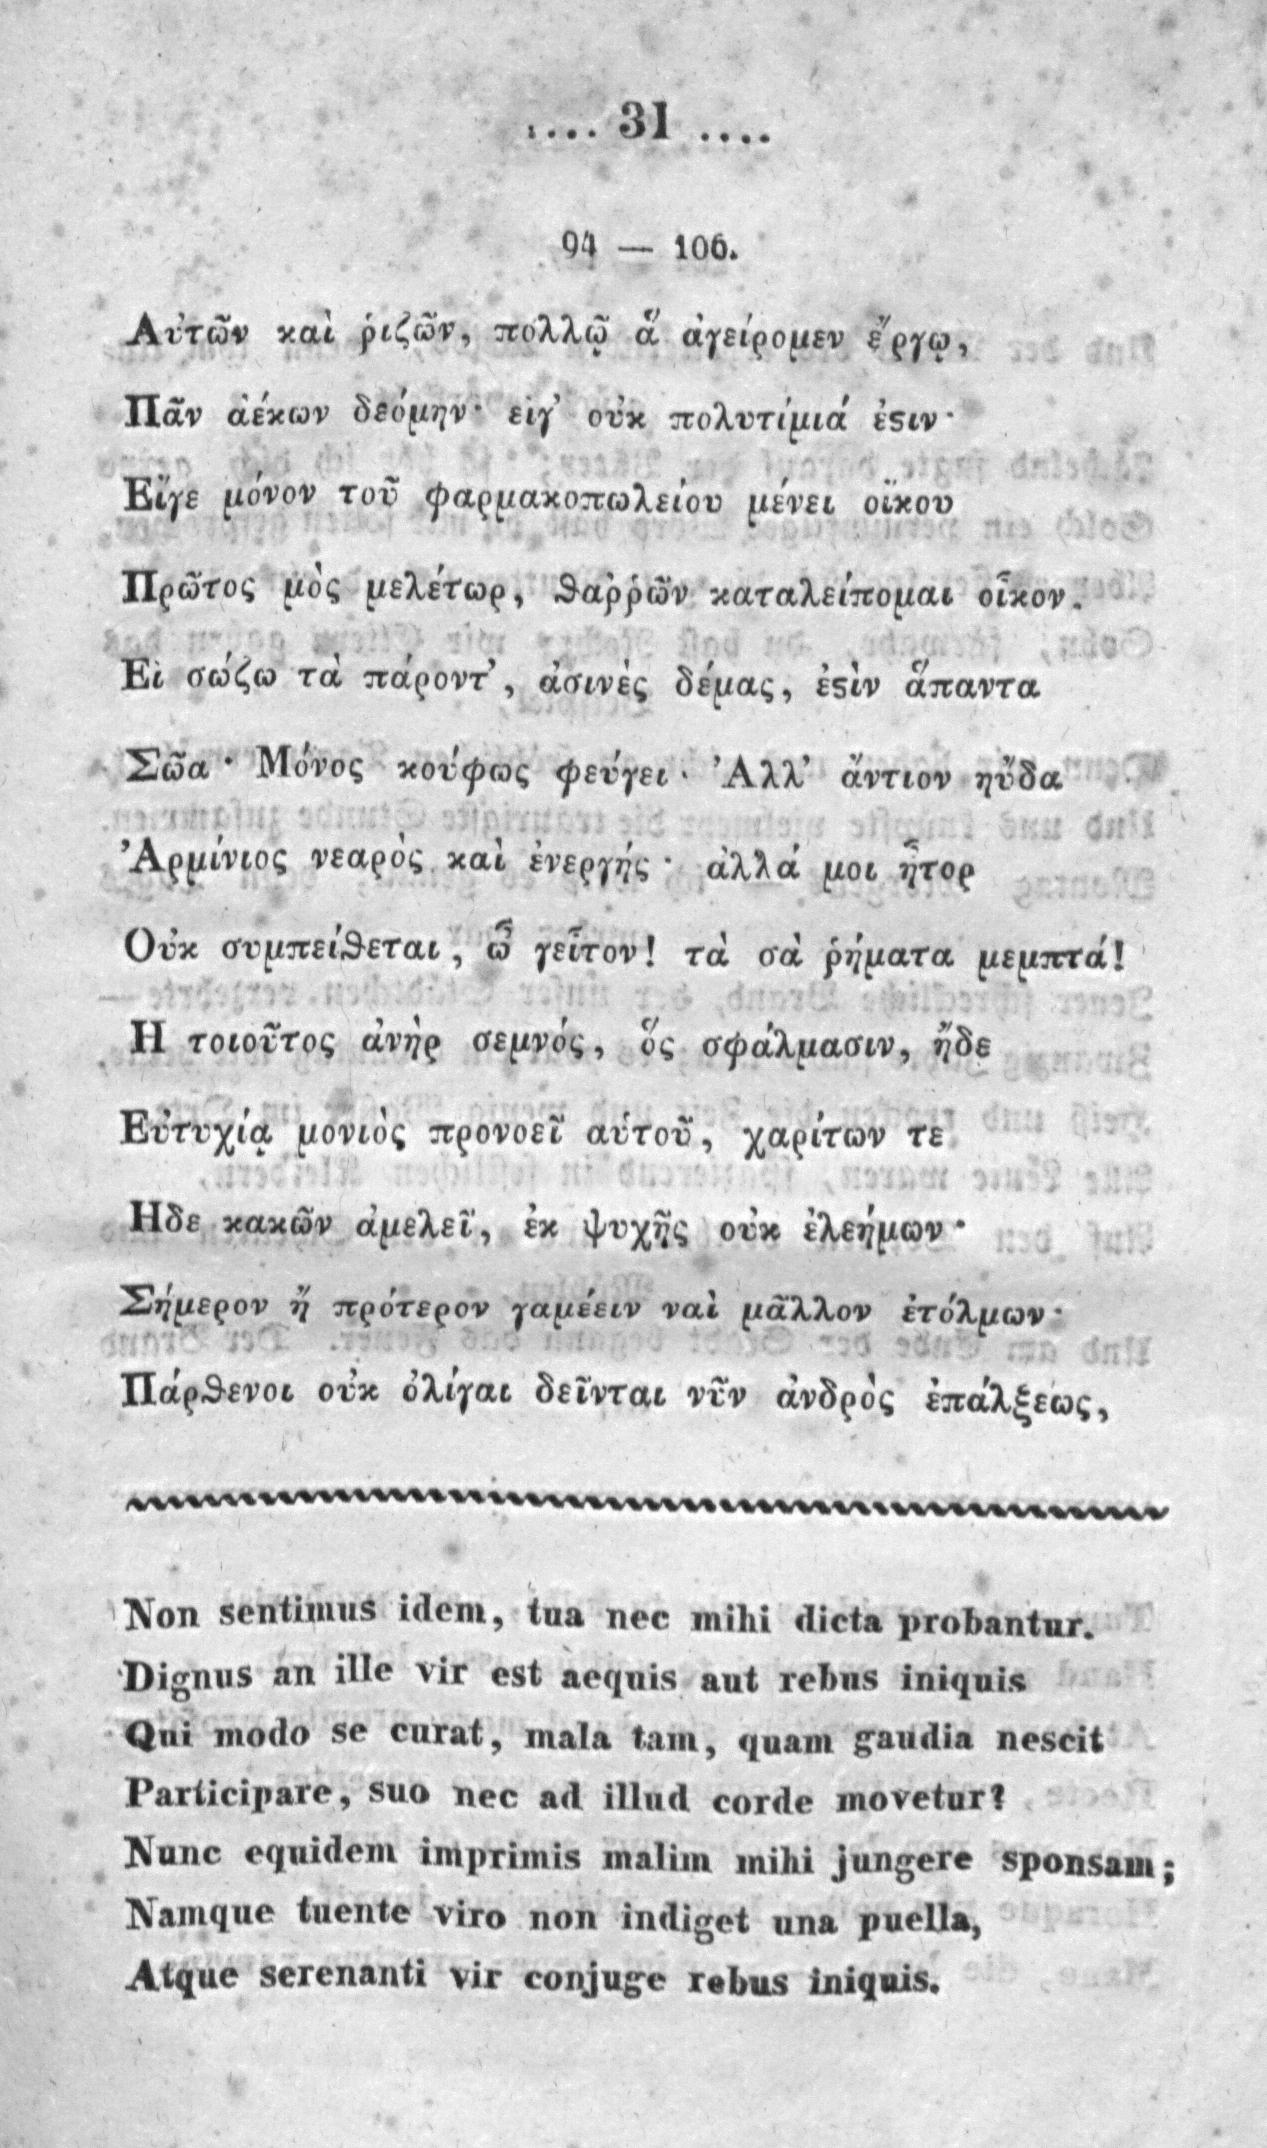 .... 31 ....
94 — 106.
Αὐτῶν καὶ ῥιζῶν, πολλῷ ἅ ἀγείρομεν ἔργῳ,
Πᾶν ἀέκων δεόμην· εἰγ' οὐκ πολυτίμιά ἐςιν·
Εἴγε μόνον τοῦ φαρμακοπωλείου μένει οἴκου
Πρῶτος μὸς μελέτωρ, ϑαῤῥῶν καταλείπομαι οἶκον.
Εἰ σώζω τὰ πάροντ', ἀσινὲς δέμας, ἐςὶν ἅπαντα
Σῶα· Μόνος κούφως φεύγει· Ἀλλ' ἄντιον ηὔδα
Ἀρμίνιος νεαρὸς καὶ ἐνεργής· ἀλλά μοι ἦτορ
Οὐκ συμπείϑεται, ὦ γεῖτον! τὰ σὰ ῥήματα μεμπτά!
Η τοιοῦτος ἀνὴρ σεμνός, ὅς σφάλμασιν, ἤδε
Εὐτυχίᾳ μονιὸς προνοεῖ αὑτοῦ, χαρίτων τε
Ηδε κακῶν ἀμελεῖ, ἐκ ψυχῆς οὐκ ἐλεήμων·
Σήμερον ἤ πρότερον γαμέειν ναὶ μᾶλλον ἐτόλμων·
Πάρϑενοι οὐκ ὀλίγαι δεῖνται νῦν ἀνδρὸς ἐπάλξεως,
Non sentimus idem, tua nec mihi dicta probantur.
Dignus an ille vir est aequis aut rebus iniquis
Qui modo se curat, mala tam, quam gaudia nescit
Participare, suo nec ad illud corde movetur?
Nunc equidem imprimis malim mihi jungere sponsam;
Namque tuente viro non indiget una puella,
Atque serenanti vir conjuge rebus iniquis.